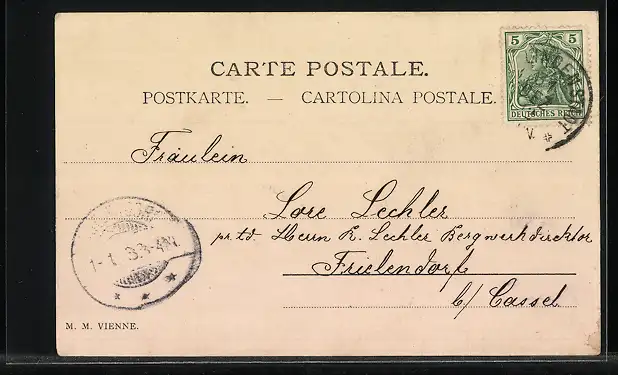 CARTE POSTALE.
POSTKARTE. — CARTOLINA POSTALE.
5 5
DEUTSCHES REICH
Fräulein
Lore Lechler
pr. td. Herrn R. Lechler Bergwerkdirektor
Frielendorf
b/ Cassel
M. M. VIENNE.